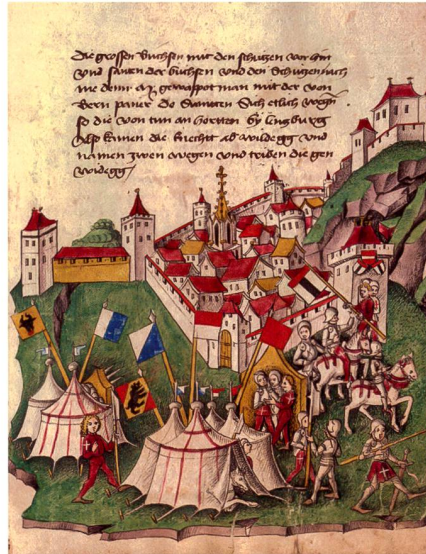 die grossen buchsen mit den schutzen vor hin
vnd santen der buchsen vnd den schutzen nach
me denn gewappot man mit der von
Bern paner do Sich etlich
so die von tun an by
Also kamen die knecht ab wildegg vnd
namen zwen wegen vnd triben die gen
wildegg